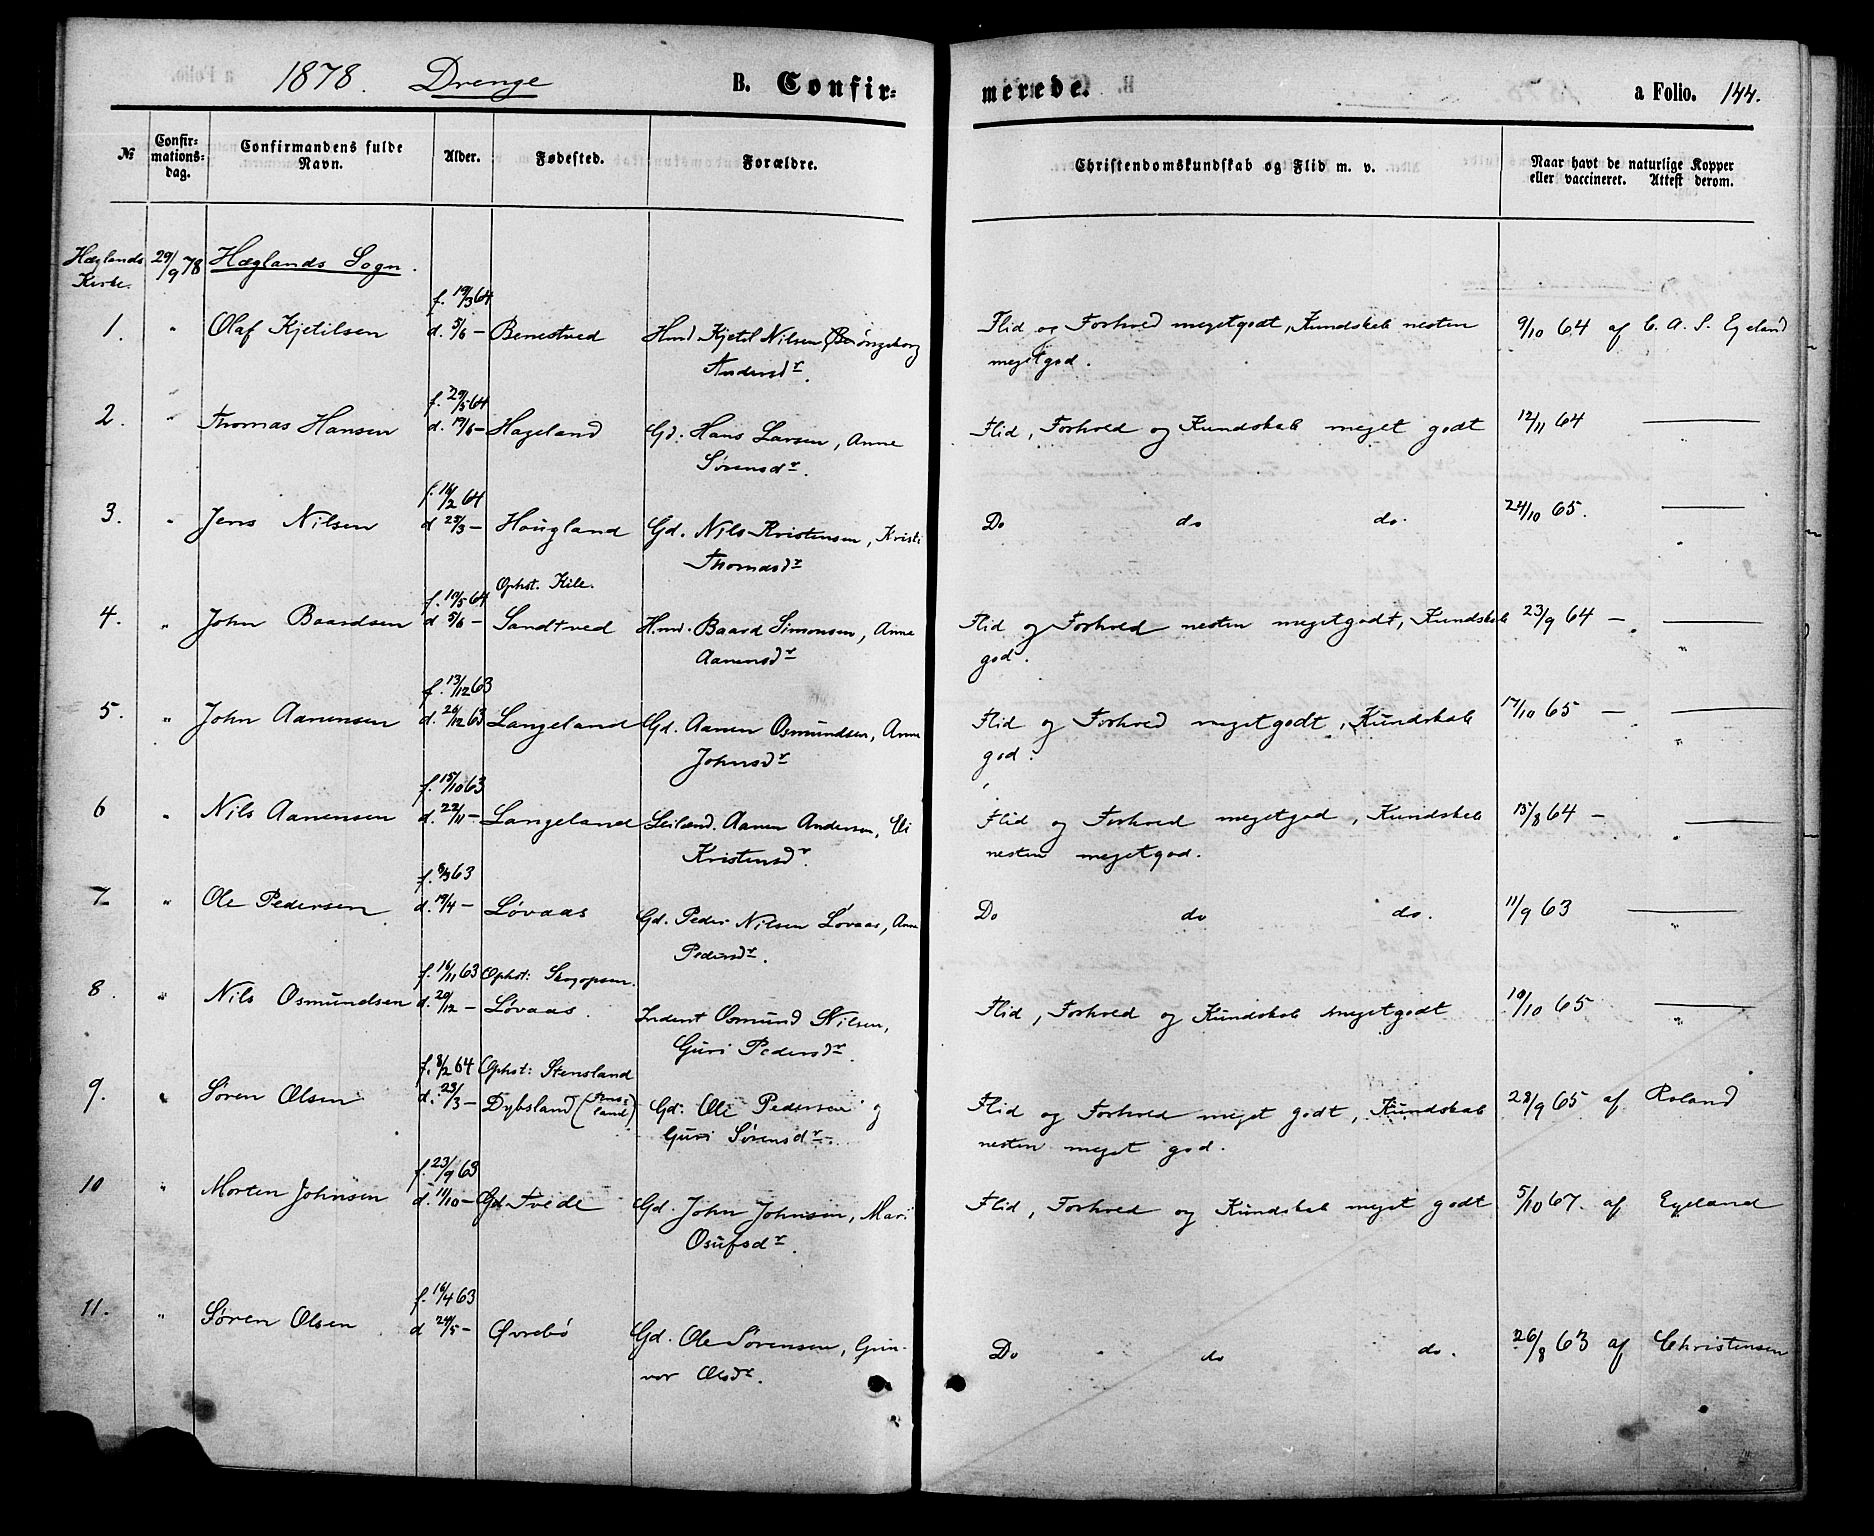 1878. Drenge B. Confir- merede. a Folio. 144.
№ Confir-mations-dag. Confirmandens fulde Navn. Alder. Fødested. Forældre. Christendomskundskab og Flid m. v. Naar havt de naturlige Kopper eller vaccineret. Attest derom.
Hæglands Kirke. 29/9 78 Hæglands Sogn.
f. 19/3 64
1. " Olaf Kjetilsen d. 5/6 — Benestved Hmd Kjetil Nilsen Ingeborg Flid og Forhold megetgodt, Kundskab nesten 9/10 64 af C. A. S. Egeland
Andersdr. megetgod.
f. 29/5 64
2. " Thomas Hansen d. 19/6 — Hageland Gd. Hans Larsen, Anne Flid, Forhold og Kundskab meget godt 12/11 64 — " —
Sørensdr.
f. 16/2 64
3. " Jens Nilsen d 28/3 — Hougland Gd. Nils Kristensen, Kristi Do do do. 24/10 65. — " —
Thomasdr
f. 10/5 64 Ophst. Kile.
4. " John Baardsen d 5/6 — Sandtved Hmd. Baard Simonsen, Anne Flid og Forhold nesten megetgodt, Kundskab 23/9 64 — " —
Aanensdr god.
f. 13/12 63
5. " John Aanensen d. 26/12 63 Langeland Gd. Aanen Osmundsen, Anne Flid og Forhold megetgodt, Kundskab 17/10 65 — " —
Johnsdr god.
f. 15/10 63
6 " Nils Aanensen d. 22/11 — Langeland Leilænd. Aanen Andersen, Flid og Forhold megetgod, Kundskab 15/8 64 — " —
Kristensdr. nesten megetgod.
f. 8/3 63
7 " Ole Pedersen d. 19/4 — Løvaas Gd. Peder Nilsen Løvaas, Anne Do do do. 11/9 63 — " —
Pedersdr.
f. 16/11 63 Ophst: Skogopsen.
8. " Nils Osmundsen d. 20/12 — Løvaas. Inderst Osmund Nilsen, Flid, Forhold og Kundskab megetgodt 10/10 65 — " —
Guri Pedersdr.
f. 8/2 64 Ophst: Stensland
9. " Søren Olsen d. 23/3 — Dybsland Gd. Ole Pedersen og Flid og Forhold meget godt, Kundskab 28/9 65 af Roland
Guri Sørensdr. nesten meget god.
f. 23/9 63
10 " Morten Johnsen d. 11/10 — Gd. Tvede Gd. John Johnsen, Mari Flid, Forhold og Kundskab meget godt 5/10 67. af Egeland
Osufsdr.
f. 16/4 63
11. " Søren Olsen d 24/5 — Øvrebø Gd. Ole Sørensen, Gun- Do do do. 26/8 63 af Christensen
vor Olsdr.